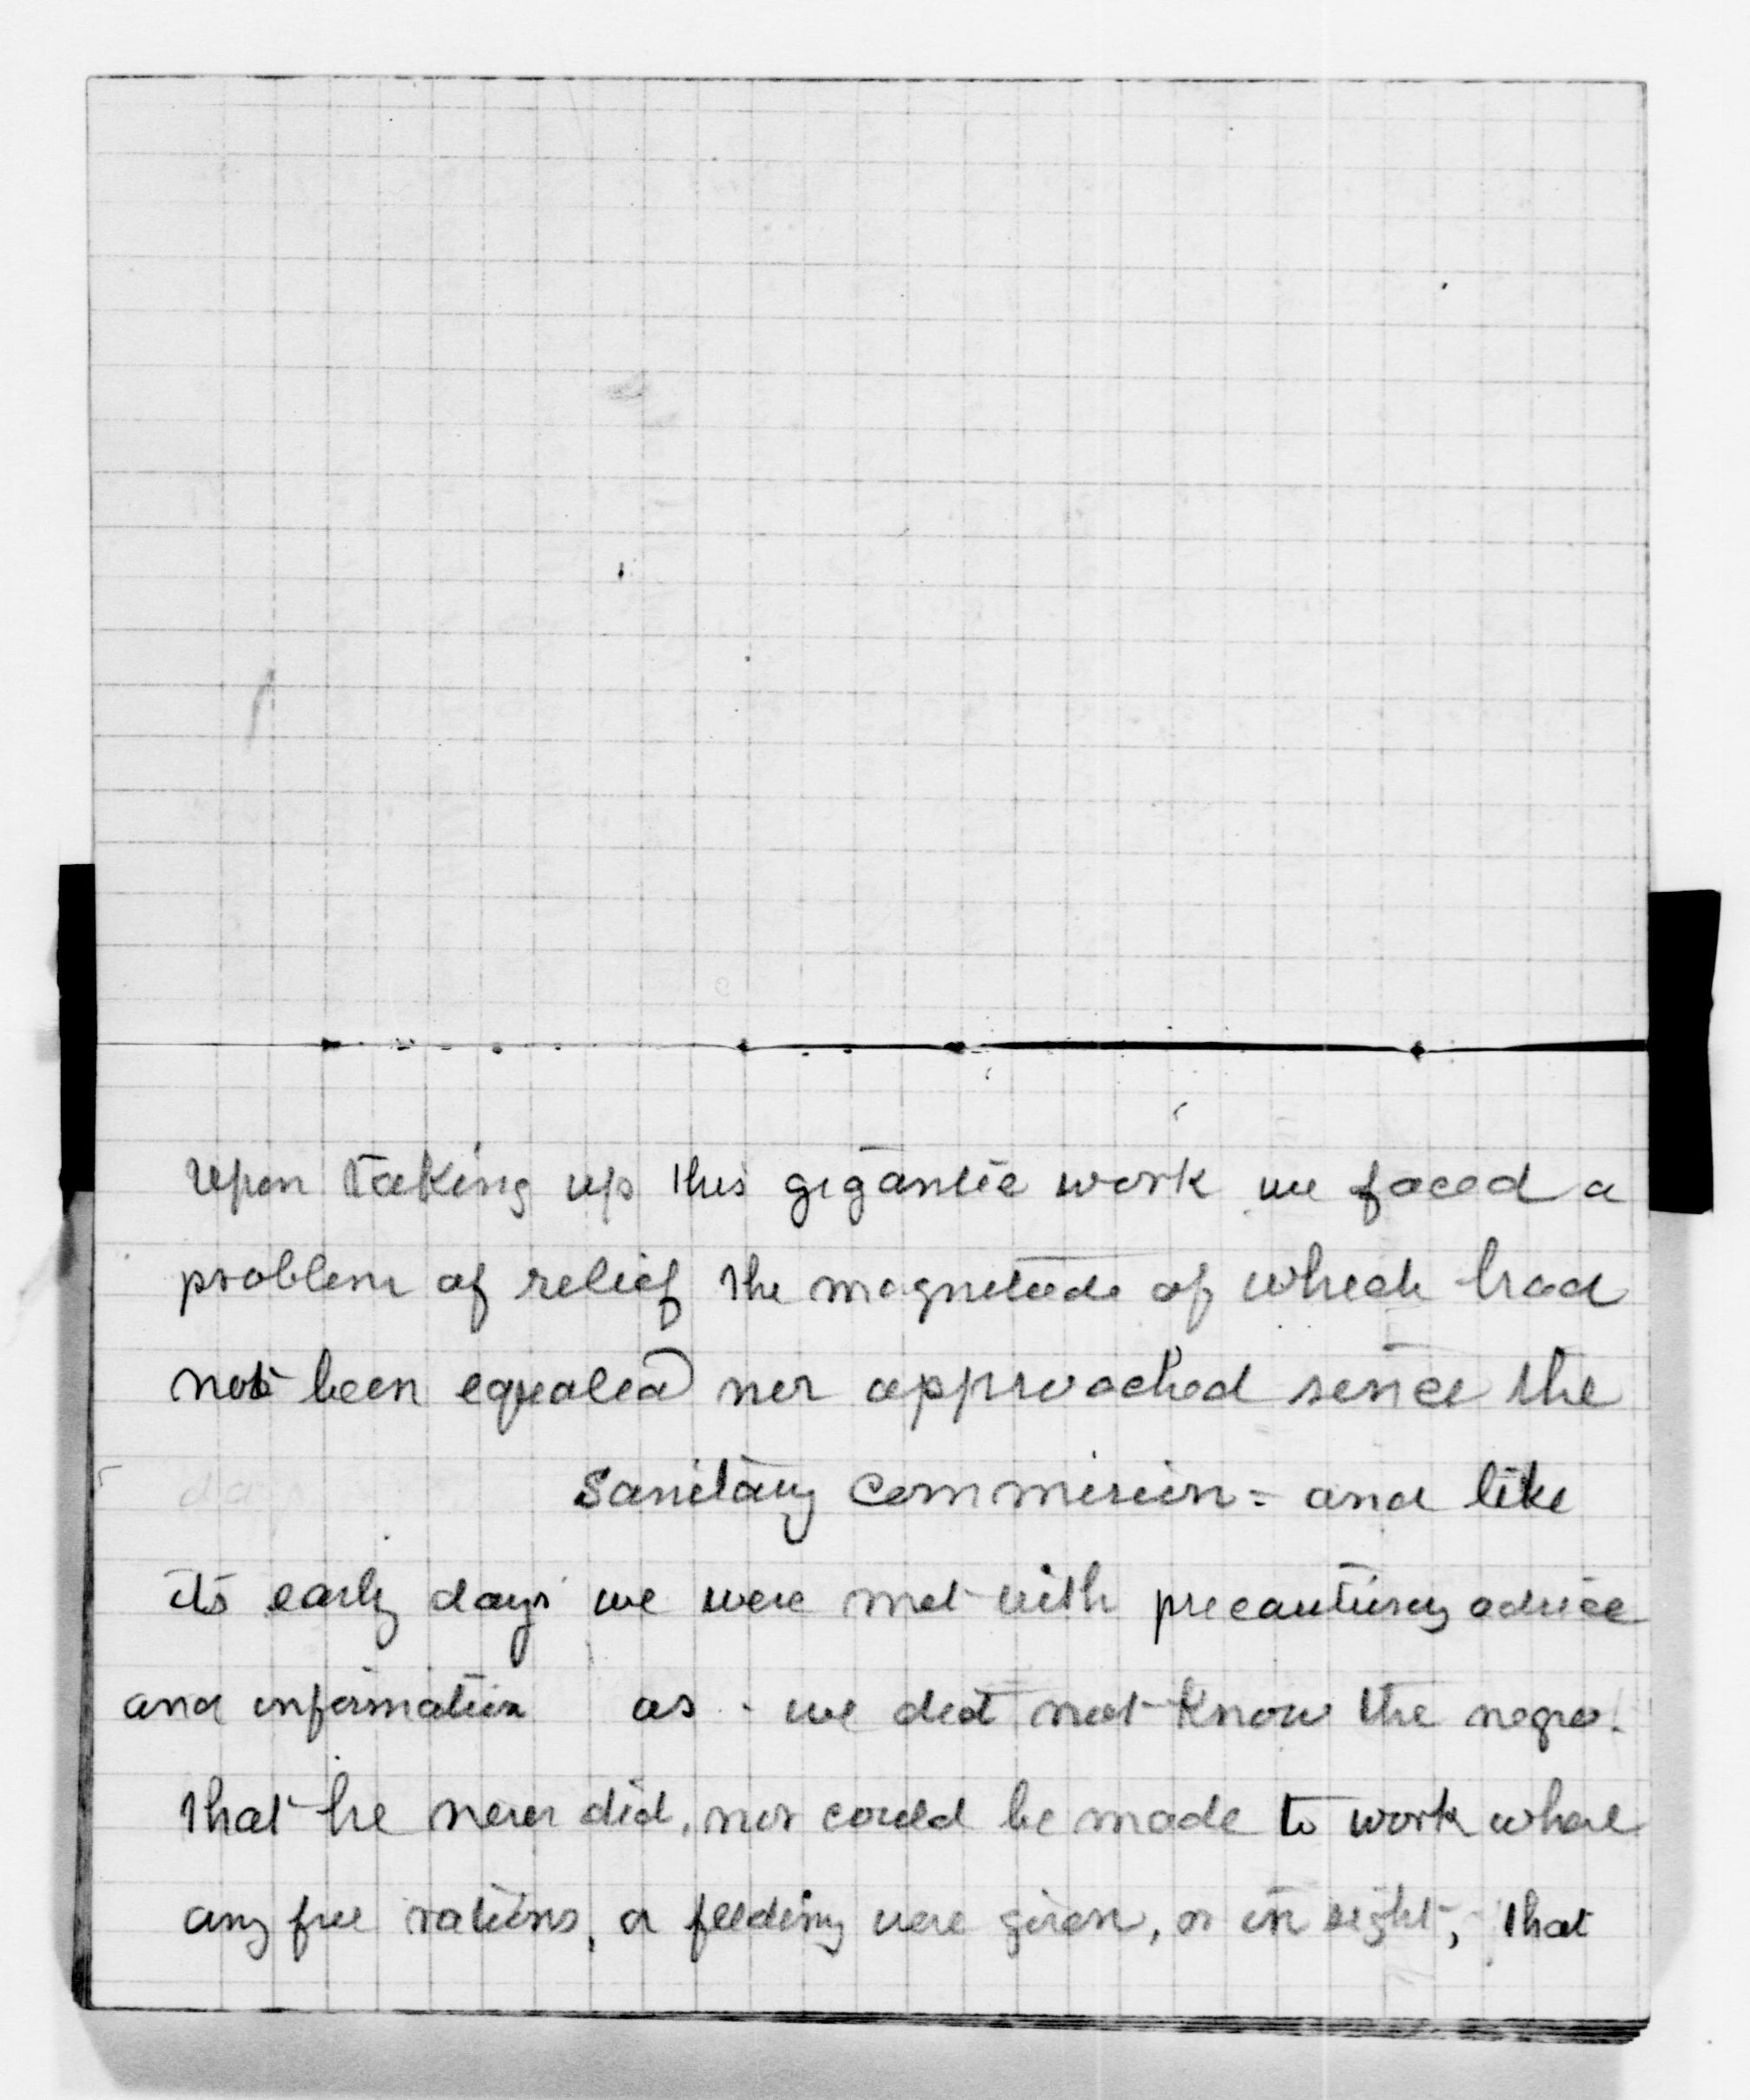 Upon taking up this gigantic work we faced a
problem of relief the magnitude of which had
not been equaled nor approached since the
Sanitary Commission - and like
its early days we were met with precautionary advice
and information as - we did not know the negro.
that he never did, nor could be made to work where
any free rations, or feeding were given, or in sight, that